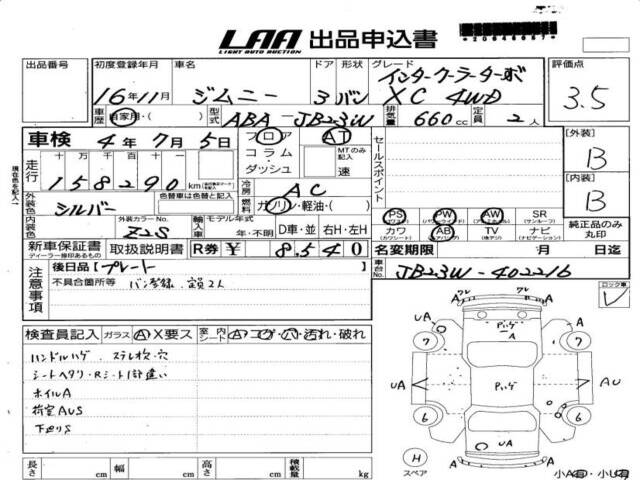 LAA 出品申込書
LIGHT AUTO AUCTION
*20646667*
出品番号 初度登録年月 車名 ドア 形状 グレード 評価点
16年11月 ジムニー 3 バン インタークーラーターボ XC 4WD 3.5
車歴 自家用・( ) 型式 ABA-JB23W 排気量 660cc 定員 2人
車検 4年7月5日 フロア AT
コラム MTのみ記入
ダッシュ 速
セールスポイント
[外装] B
[内装] B
現在色を記入
走行 十万千百十
158290km
冷房 AC
外装色 シルバー 色替車は色替と記入
燃料 ガソリン・軽油・( )
内装色 外装カラーNo. Z2S
輸入車 モデル年式 年・不明 D車・並 右H・左H
PS PW AW SR
(パワステ) (パワーウィンド) (アルミホイール) (サンルーフ)
カワ AB TV ナビ
(カワシート) (エアバッグ) (地デジ) (ナビゲーション)
純正品のみ丸印
新車保証書 取扱説明書 R券 ¥ 8,540
ディーラー捺印あるもの
名変期限 月 日迄
注意事項 後日品[プレート
不具合箇所等 バン登録、定員2人
車台No. JB23W-402216
ロック車 レ
検査員記入 ガラス A X要ス 室内シート A コゲ 穴 汚れ・破れ
ハンドルハゲ、ステレオ欠・穴
シートヘタリ・Rシート1部違い
ホイルA
荷室AUS
下廻りS
ワレ ワレ
A A
UA 7 ハゲ A 7
UA ハゲ AU
6 6
UA
A A
H
スペア
小A有・小U有
長さ cm 幅 cm 高さ cm 積載量 kg